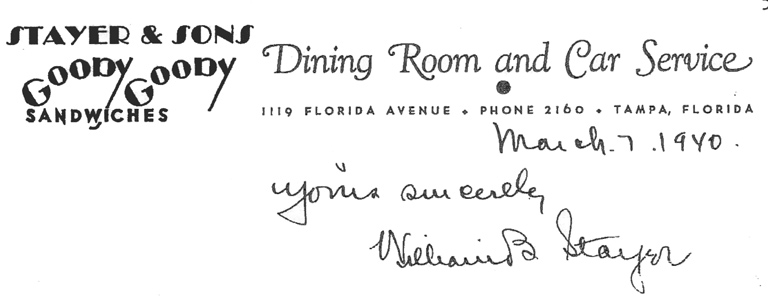 STAYER & SONS
GOODY GOODY
SANDWICHES
Dining Room and Car Service
1119 FLORIDA AVENUE • PHONE 2160 • TAMPA, FLORIDA
March. 7. 1940.
Yours sincerely
William B. Stayer